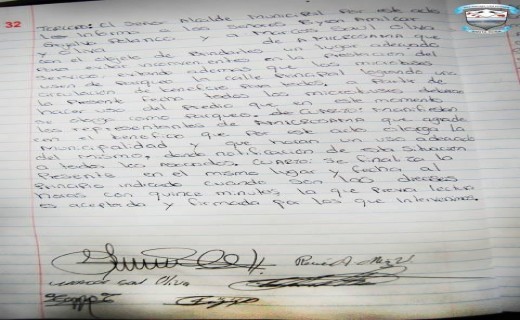 32
TERCERO: El Señor Alcalde Municipal por este acto
se informa a los señores Byron Amilcar
Grijalva Polanco y a Marcos Saúl Oliva
y Oliva de AMICROSAMA que
con el objeto de Brindarles un lugar adecuado
para evitar inconvenientes en la prestación del
Servicio, evitando además que los microbuses
usen de parqueo la calle Principal logrando una
circulación de beneficio para todos, a partir de
la Presente fecha todos los microbuses deberán
hacer uso del Predio que en este momento
se otorga como Parqueo, de manifiestan
los representantes de AMICROSAMA que agradecen
el beneficio que por este acto otorga la
Municipalidad y que harán un uso adecuado
del mismo, dando notificación de esta situación
a todos los asociados, CUARTO: Se finaliza la
Presente en el mismo lugar y fecha al
Principio indicado cuando son las dieciseis
horas con quince minutos, la que previa lectura
es aceptada y firmada por los que intervenimos.
Marcos Saul Oliva